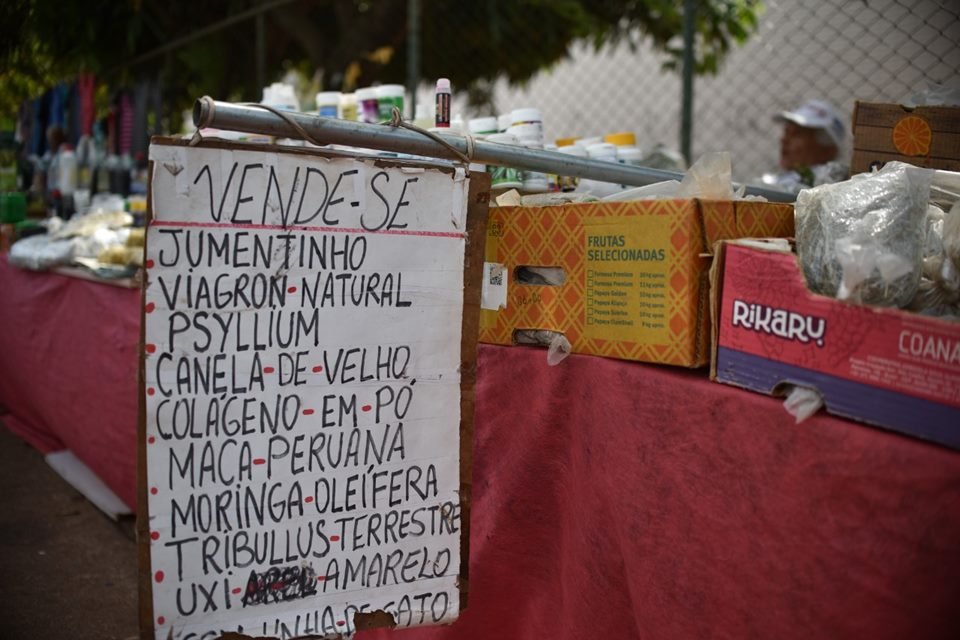 VENDE-SE
JUMENTINHO
VIAGRON-NATURAL
PSYLLIUM
CANELA-DE-VELHO
COLÁGENO-EM-PÓ
MACA-PERUANA
MORINGA-OLEÍFERA
TRIBULLUS-TERRESTRE
UXI-AMARELO
UNHA-DE-GATO
FRUTAS
SELECIONADAS
Formosa Premium
Papaya Golden
RiKARY
COANA